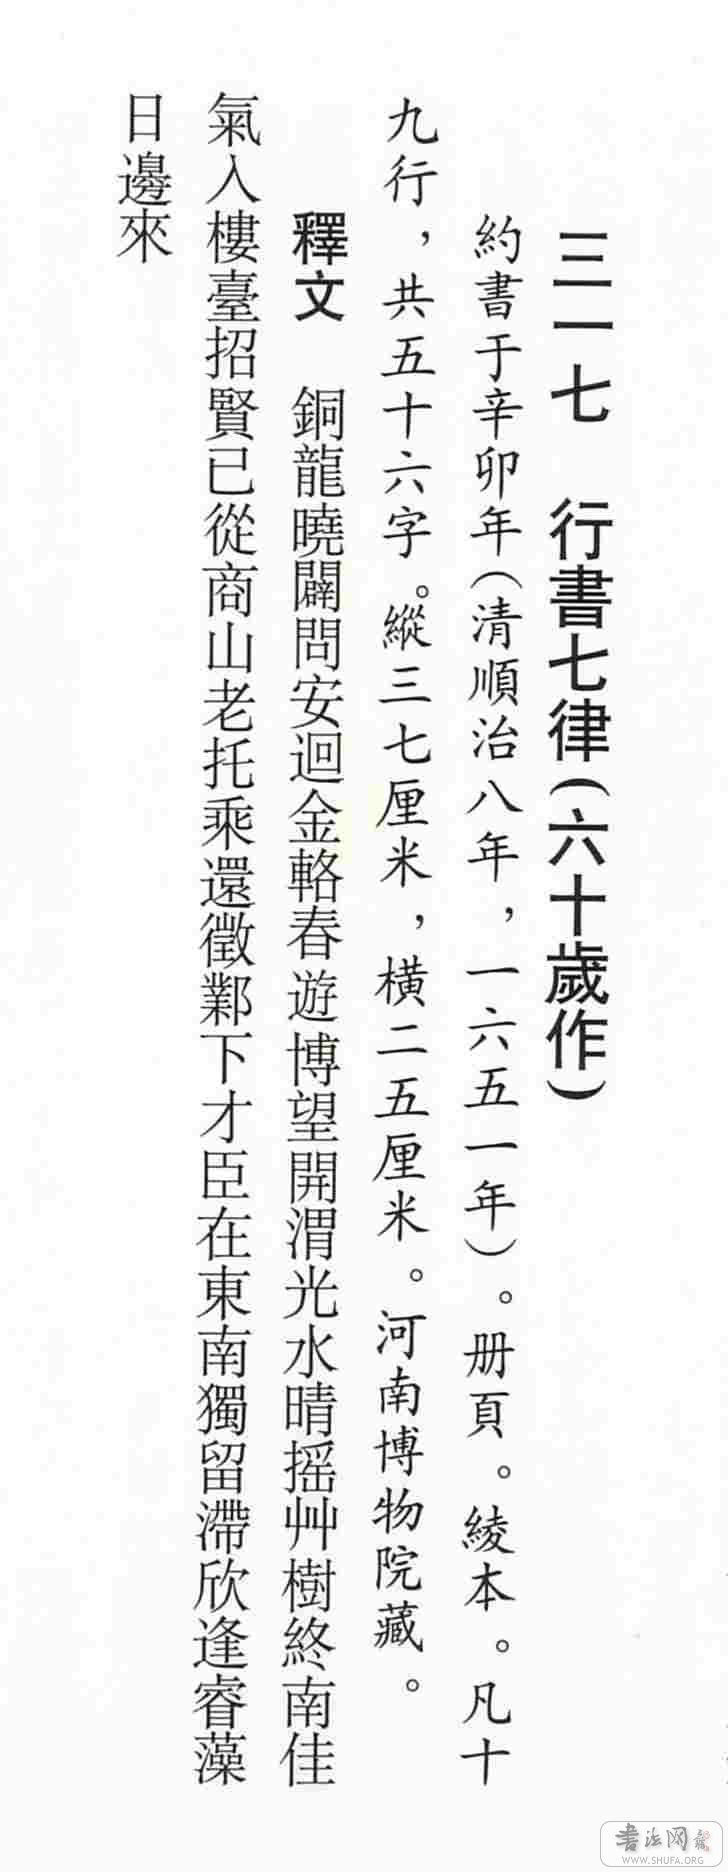 三一七　行書七律（六十歲作）
約書于辛卯年（清順治八年，一六五一年）。册頁。綾本。凡十
九行，共五十六字。縱三七厘米，橫二五厘米。河南博物院藏。
釋文　銅龍曉闢問安迴金輅春遊博望開渭光水晴摇艸樹終南佳
氣入樓臺招賢已從商山老托乘還徵鄴下才臣在東南獨留滯欣逢睿藻
日邊來
書法网
WWW.SHUFA.ORG